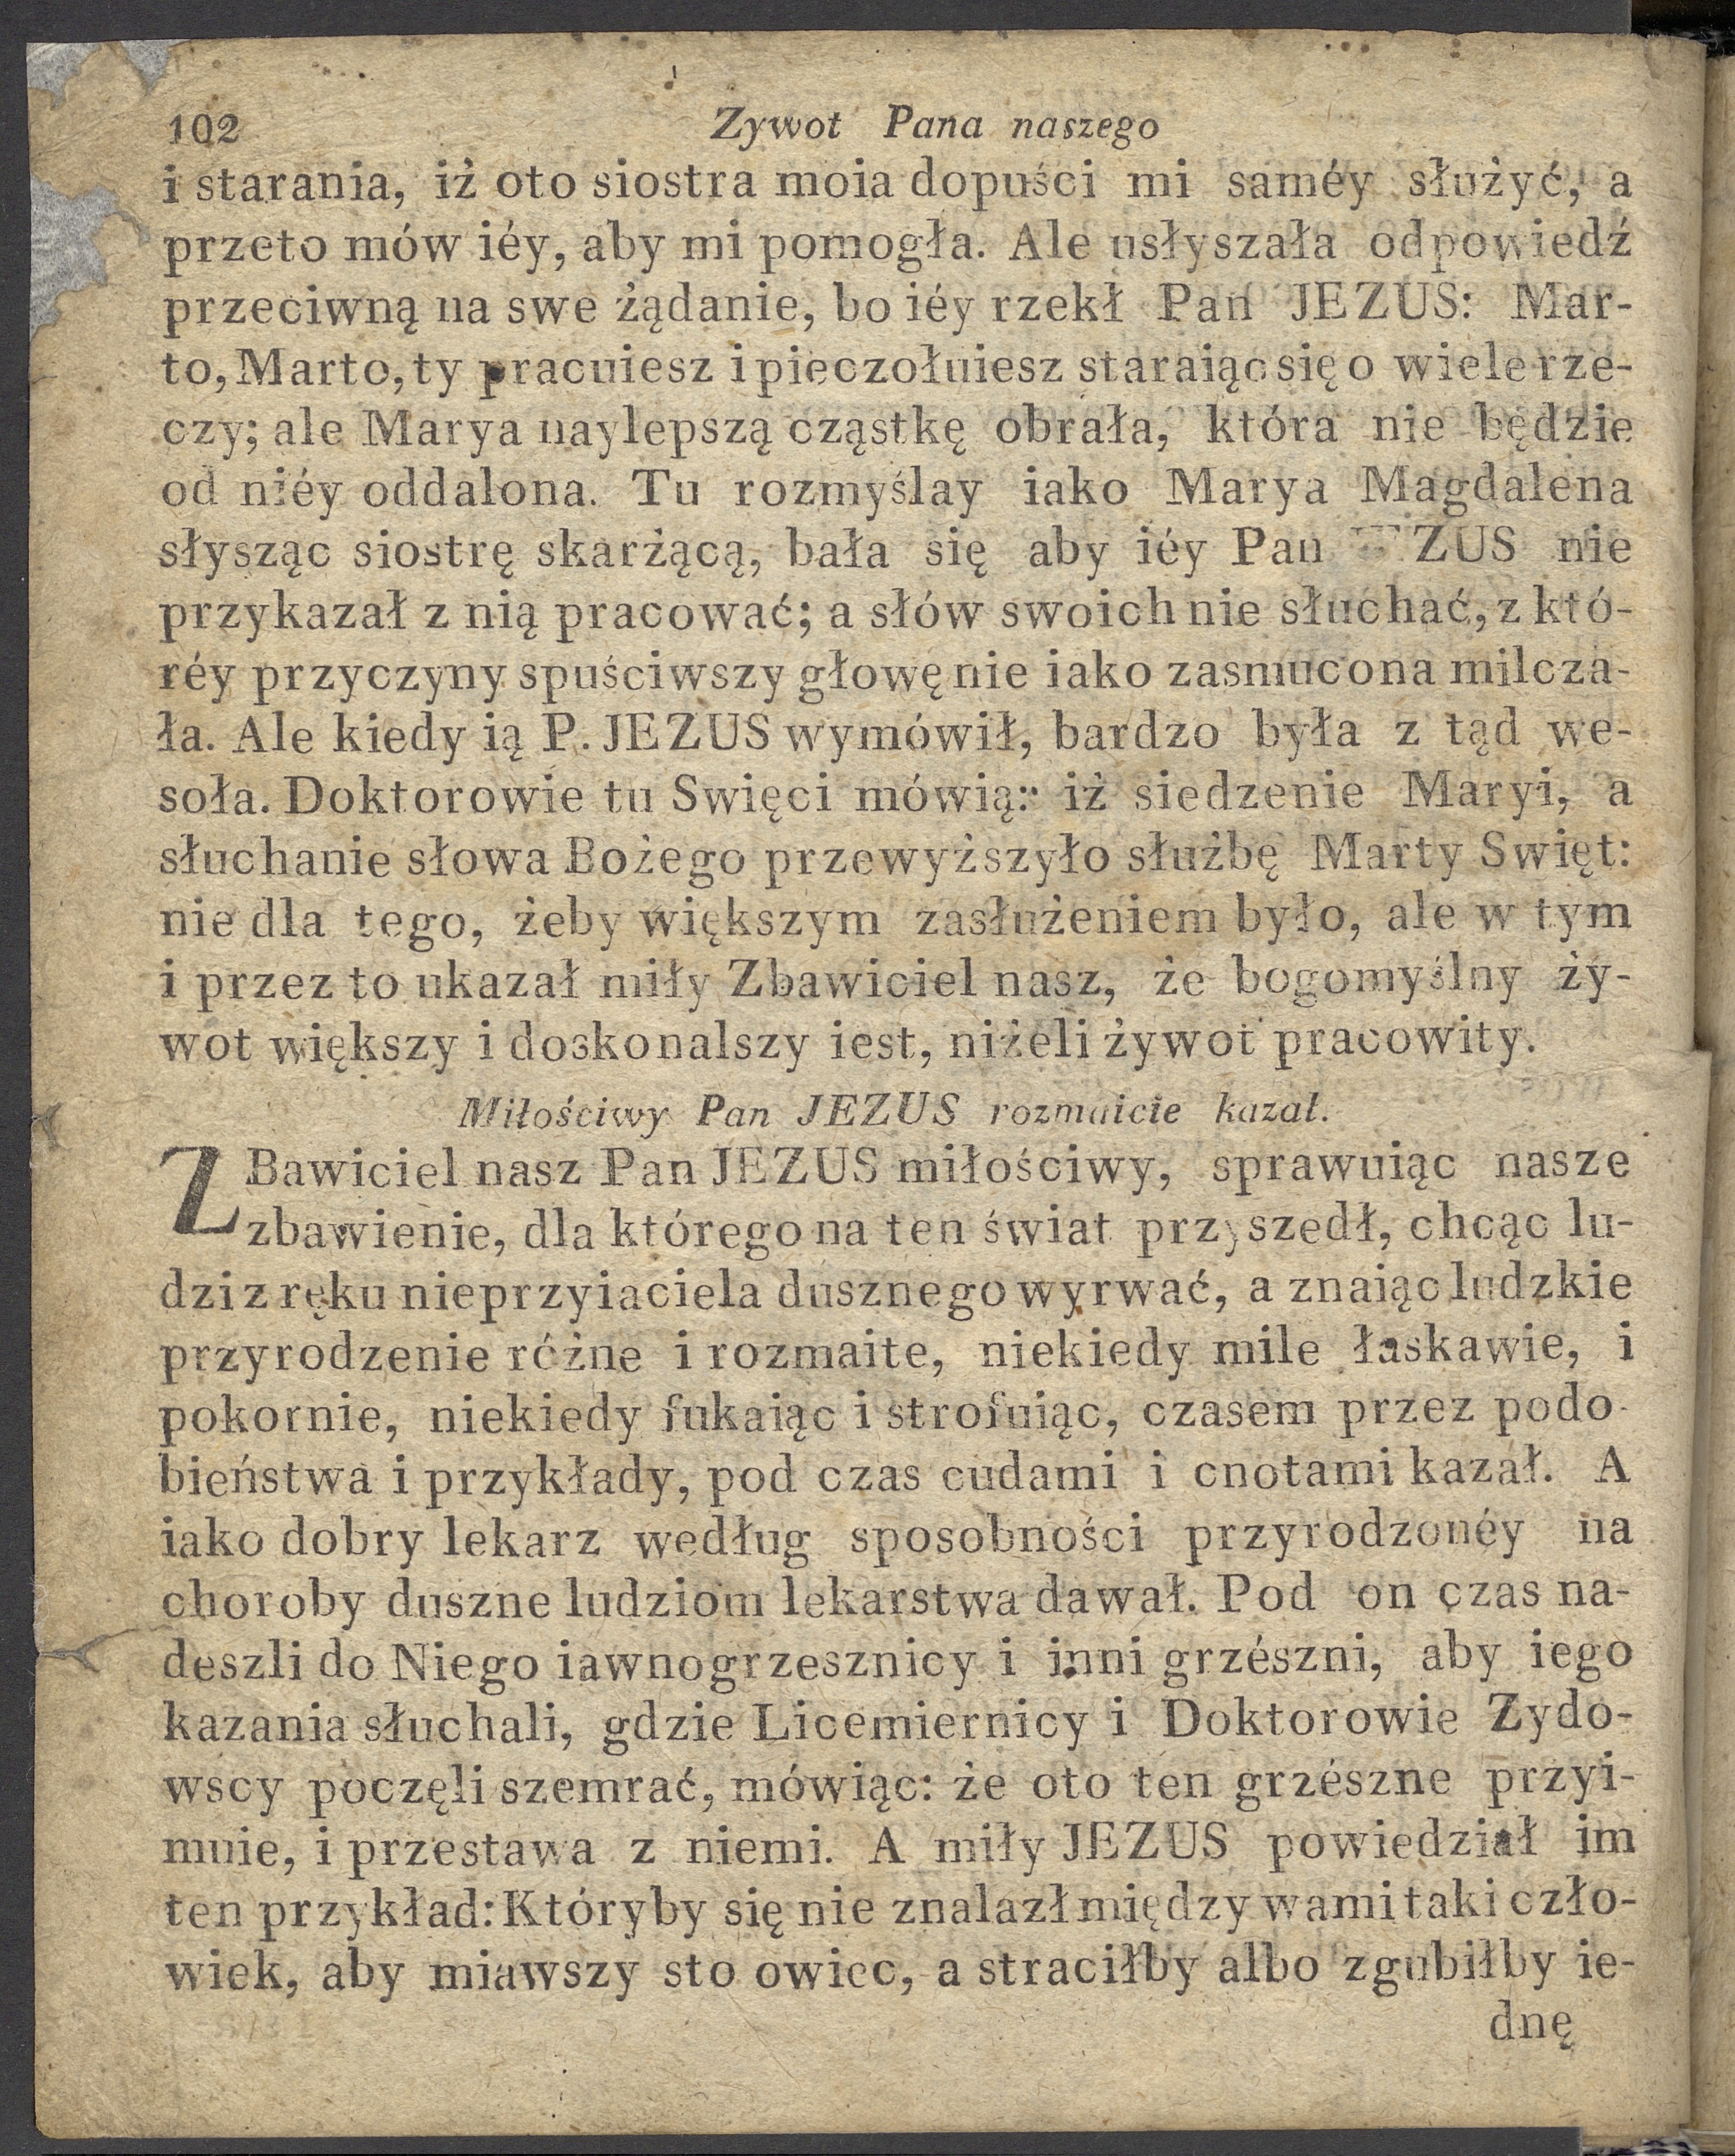 102 Zywot Pana naszego
i starania, iż oto siostra moia dopuści mi saméy służyć, a
przeto mów iéy, aby mi pomogła. Ale usłyszała odpowiedź
przeciwną na swe żądanie, bo iéy rzekł Pan JEZUS: Mar-
to, Marto, ty pracuiesz i pieczołuiesz staraiąc się o wiele rze-
czy; ale Marya naylepszą cząstkę obrała, która nie będzie
od niéy oddalona. Tu rozmyślay iako Marya Magdalena
słysząc siostrę skarżącą, bała się aby iéy Pan JEZUS nie
przykazał z nią pracować; a słów swoich nie słuchać, z któ-
réy przyczyny spuściwszy głowę nie iako zasmucona milcza-
ła. Ale kiedy ią P. JEZUS wymówił, bardzo była z tąd we-
soła. Doktorowie tu Swięci mówią: iż siedzenie Maryi, a
słuchanie słowa Bożego przewyższyło służbę Marty Swięt:
nie dla tego, żeby większym zasłużeniem było, ale w tym
i przez to ukazał miły Zbawiciel nasz, że bogomyślny ży-
wot większy i doskonalszy iest, niżeli żywot pracowity.
Miłościwy Pan JEZUS rozmaicie kazał.
ZBawiciel nasz Pan JEZUS miłościwy, sprawuiąc nasze
zbawienie, dla którego na ten świat przyszedł, chcąc lu-
dzi z ręku nieprzyiaciela dusznego wyrwać, a znaiąc ludzkie
przyrodzenie różne i rozmaite, niekiedy mile łaskawie, i
pokornie, niekiedy fukaiąc i strofuiąc, czasem przez podo-
bieństwa i przykłady, pod czas cudami i cnotami kazał. A
iako dobry lekarz według sposobności przyrodzonéy na
choroby duszne ludziom lekarstwa dawał. Pod on czas na-
deszli do Niego iawnogrzesznicy i inni grzészni, aby iego
kazania słuchali, gdzie Licemiernicy i Doktorowie Zydo-
wscy poczęli szemrać, mówiąc: że oto ten grzészne przyi-
muie, i przestawa z niemi. A miły JEZUS powiedział im
ten przykład: Któryby się nie znalazł między wami taki czło-
wiek, aby miawszy sto owiec, a straciłby albo zgubiłby ie-
dnę